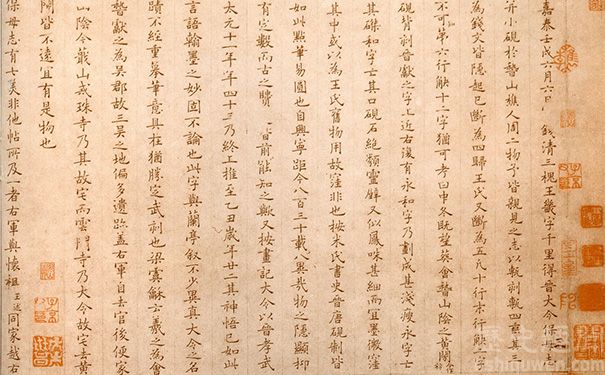 嘉泰壬戌六月六日 錢清三槐王畿字千里得晉大令保母志
并小硯於嵇山樵人周二物予皆親見之志以甎刻甎四垂其三
為錢文皆隱起已斷為四歸王氏又斷為五凡十行末行缺二字
不可第六行缺十二字猶可考曰中冬既望葬會嵇山陰之黃閍
硯背刻晉獻之字上近右復有永和字乃劃成甚淺瘦永字亡
其磔和字亡其口硯石絕類靈壁又似鳳咮甚細而宜墨微窪
其中或以為王氏舊物用故窪非也按米氏書史晉唐硯制皆
如此點筆易圓也自興寧距今八百三十載八與幾物之隱顯抑
有定數而古之賢 目前能知之歟又按畫記大令以晉孝武
太元十一年年四十三乃終上推至乙丑歲年廿二其神悟已如此
言語翰墨之妙固不論也此字與蘭亭敘不少異真大令之名
蹟不經重摹筆意具在猶勝定武刻也梁虞龢云羲之為會
嵇獻之為吳郡故三吳之地偏多遺跡蓋右軍自去官後便家
山陰今蕺山戒珠寺乃其故宅而雲門寺乃大令故宅去黃
閍皆不遠宜有是物也
保母志有七美非他帖所及一者右軍與懷祖王述同家越右